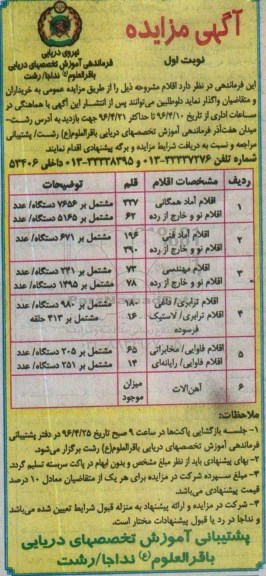 آگهی مزایده
نوبت اول
نیروی دریایی
فرماندهی آموزش تخصصهای دریایی
باقرالعلوم(ع) نداجا/رشت
این فرماندهی در نظر دارد اقلام مشروحه ذیل را از طریق مزایده عمومی به خریداران
و متقاضیان واگذار نماید داوطلبین می‌توانند پس از انتشار این آگهی با هماهنگی در
ساعات اداری از تاریخ ۹۶/۴/۱۰ تا حداکثر ۹۶/۴/۲۱ جهت بازدید به آدرس رشت-
میدان هفت‌آذر فرماندهی آموزش تخصصهای دریایی باقرالعلوم(ع) رشت/ پشتیبانی
مراجعه و نسبت به دریافت شرایط مزایده و برگه پیشنهادی اقدام نمایند.
شماره تلفن ۳۳۳۳۷۳۷۶-۰۱۳ و ۳۳۳۳۸۳۹۵-۰۱۳ داخلی ۵۳۴۰۶
ردیف مشخصات اقلام قلم توضیحات
۱ اقلام آماد همگانی ۳۳۷ مشتمل بر ۷۶۵۶ دستگاه/ عدد
اقلام نو و خارج از رده ۶۲ مشتمل بر ۵۱۶۵ دستگاه/ عدد
۲ اقلام آماد فنی ۱۹۶ مشتمل بر ۶۷۱ دستگاه/ عدد
اقلام نو و خارج از رده ۳۹۰
۳ اقلام مهندسی ۷۳ مشتمل بر ۲۴۱ دستگاه/ عدد
اقلام نو و خارج از رده ۷۸ مشتمل بر ۱۴۹۵ دستگاه/ عدد
۴ اقلام ترابری/ داغی ۱۸۰ مشتمل بر ۹۸۰ دستگاه/ عدد
اقلام ترابری/ لاستیک ۱۶ مشتمل بر ۴۱۳ حلقه
فرسوده
۵ اقلام فاوایی/ مخابراتی ۶۵ مشتمل بر ۲۰۵ دستگاه/ عدد
اقلام فاوایی/ رایانه‌ای ۱۴ مشتمل بر ۲۵۱ دستگاه/ عدد
۶ آهن‌آلات میزان
موجود
ملاحظات:
۱- جلسه بازگشایی پاکت‌ها در ساعت ۹ صبح تاریخ ۹۶/۴/۲۵ در دفتر پشتیبانی
فرماندهی آموزش تخصصهای دریایی باقرالعلوم(ع) رشت برگزار می‌شود.
۲- بهای پیشنهادی باید از نظر مبلغ مشخص و بدون ابهام در پاکت سربسته تسلیم گردد.
۳- مبلغ سپرده شرکت در مزایده برای هر یک از متقاضیان معادل ۱۰ درصد
قیمت پیشنهادی می‌باشد.
۴- شرکت در مزایده و ارائه پیشنهاد به منزله قبول شرایط تعیین شده می‌باشد
و نداجا در رد یا قبول پیشنهادات مختار است.
پشتیبانی آموزش تخصصهای دریایی
باقرالعلوم(ع) نداجا/رشت